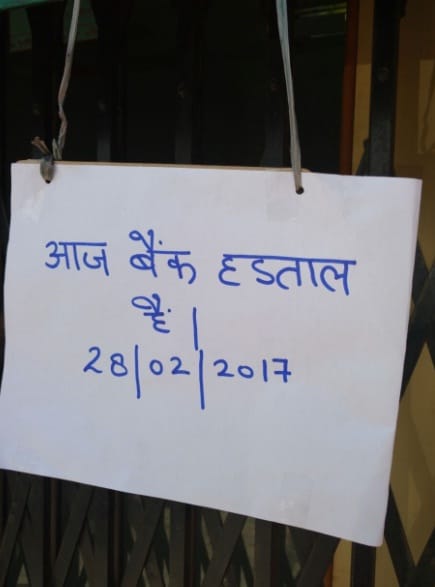 आज बैंक हडताल
हैं |
28/02/2017